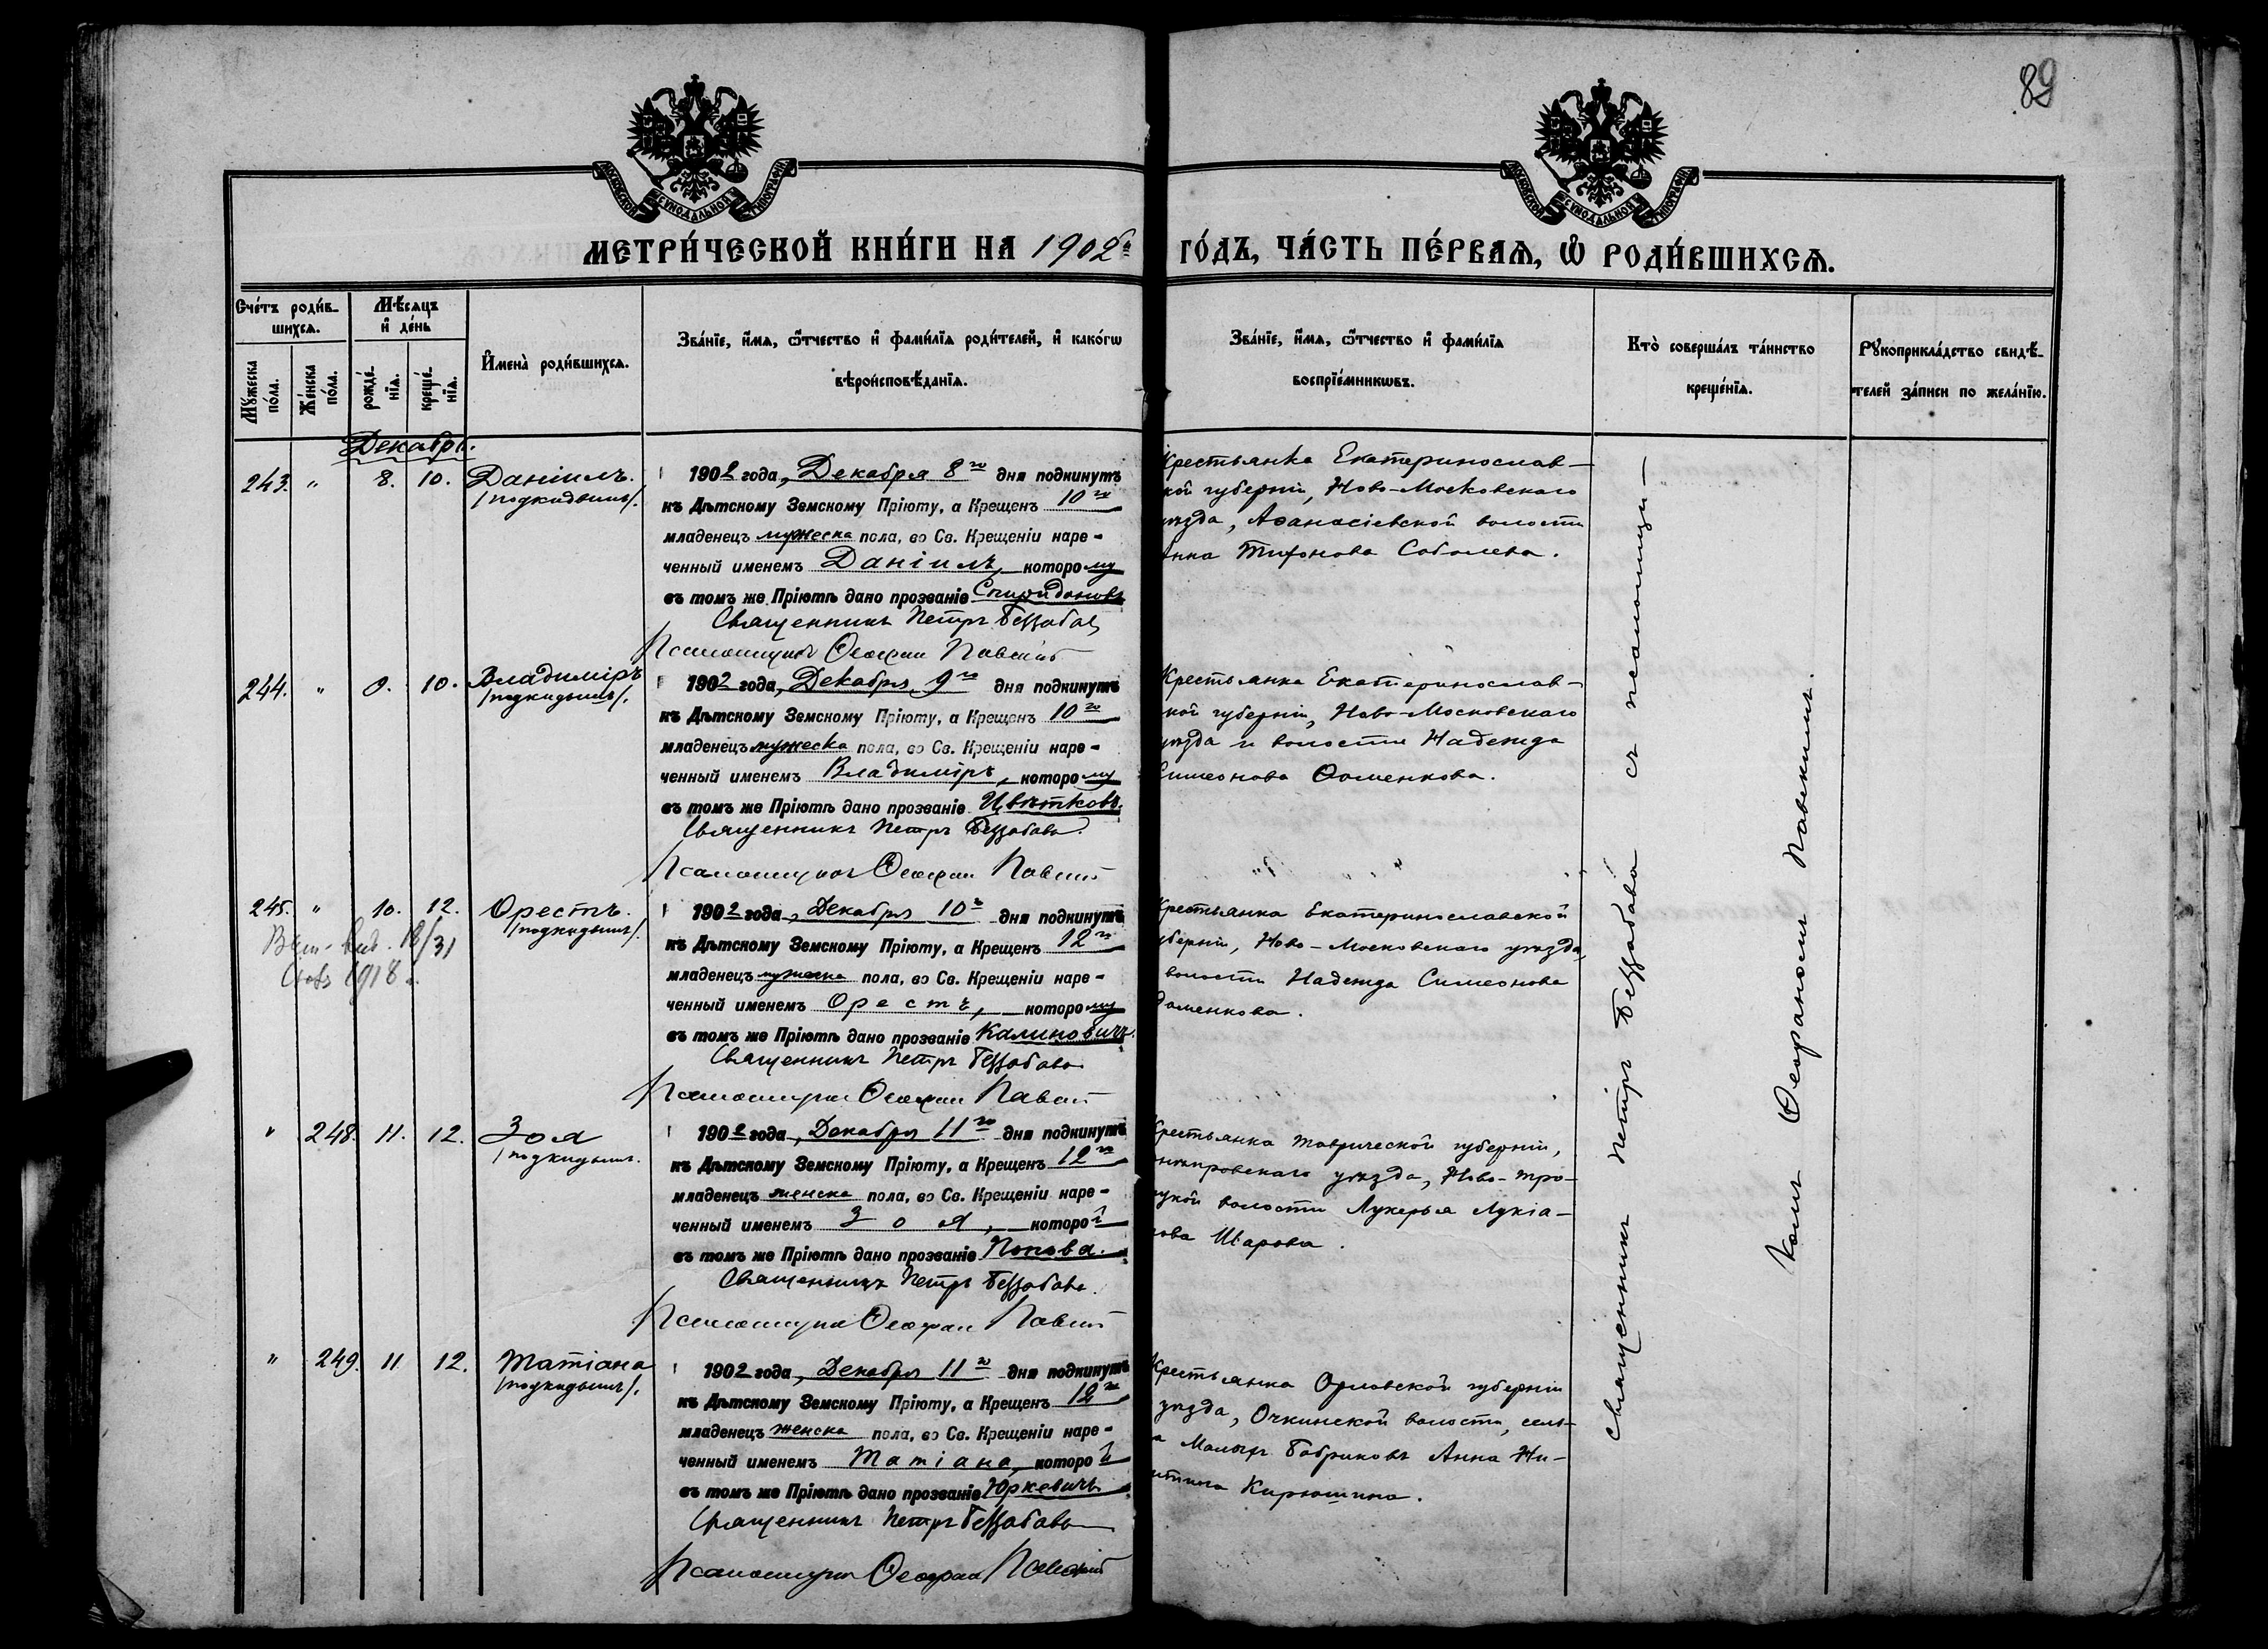 89
МОСКОВСКОЙ СУНОДАЛЬНОЙ ТИПОГРАФІИ
МОСКОВСКОЙ СУНОДАЛЬНОЙ ТИПОГРАФІИ
МЕТРИ́ЧЕСКОЙ КНИ́ГИ НА 1902й ГО́ДЪ, ЧА́СТЬ ПЕ́РВАЯ, Ѡ҆ РОДИ́ВШИХСЯ.
Сче́тъ роди́в-
шихся.
Мꙋжеска по́ла.
Же́нска по́ла.
Мѣ́сяцъ
и҆ де́нь
рожде́-
нїя.
креще́-
нїя.
И҆мена̀ роди́вшихся.
Зва́нїе, и҆́мя, ѻ҆́тчество и҆ фами́лїя роди́телей, и҆ како́гѡ
вѣроисповѣ́данїя.
Зва́нїе, и҆́мя, ѻ҆́тчество и҆ фами́лїя
воспрїе́мникѡвъ.
Кто̀ соверша́лъ та́инство
креще́нїя.
Рꙋкоприкла́дство свидѣ́-
телей за́писи по жела́нїю.
Декабрь.
243. " 8. 10. Даніилъ.
/подкидышъ/.
1902 года, Декабря 8го дня подкинутъ
къ Дѣтскому Земскому Пріюту, а Крещенъ 10го
младенецъ мужеска пола, во Св. Крещеніи наре-
ченный именемъ Даніилъ, которому
въ томъ же Пріютѣ дано прозваніе Спиридоновъ
Священникъ Петръ Беззабава
Псаломщикъ Ѳеофан Павскій
Крестьянка Екатеринослав-
кой губерніи, Ново-Московскаго
уѣзда, Аѳанасіевской волости
Анна Тихонова Соболева.
244. " 9. 10. Владиміръ
/подкидышъ/.
1902 года, Декабря 9го дня подкинутъ
къ Дѣтскому Земскому Пріюту, а Крещенъ 10го
младенецъ мужеска пола, во Св. Крещеніи наре-
ченный именемъ Владиміръ, которому
въ томъ же Пріютѣ дано прозваніе Цвѣтковъ.
Священникъ Петръ Беззабава.
Псаломщикъ Ѳеофан Павскій
Крестьянка Екатеринослав-
кой губерніи, Ново-Московскаго
уѣзда и волости Надежда
Симеонова Ѳоменкова.
245. " 10. 12. Орестъ.
/подкидышъ/.
18/31
1918
1902 года, Декабря 10го дня подкинутъ
къ Дѣтскому Земскому Пріюту, а Крещенъ 12го
младенецъ мужеска пола, во Св. Крещеніи наре-
ченный именемъ Орестъ, которому
въ томъ же Пріютѣ дано прозваніе Калиновичъ.
Священникъ Петръ Беззабава
Псаломщикъ Ѳеофан Павскій
Крестьянка Екатеринославской
губерніи, Ново-Московскаго уѣзда,
волости Надежда Симеонова
Ѳоменкова.
" 248. 11. 12. Зоя
/подкидышъ.
1902 года, Декабря 11го дня подкинутъ
къ Дѣтскому Земскому Пріюту, а Крещенъ 12го
младенецъ женска пола, во Св. Крещеніи наре-
ченный именемъ Зоя, которой
въ томъ же Пріютѣ дано прозваніе Попова.
Священникъ Петръ Беззабава.
Псаломщикъ Ѳеофан Павскій
Крестьянка Таврической губерніи,
Днѣпровскаго уѣзда, Ново-Тро-
ицкой волости Лукерья Лукіа-
нова Шарова.
" 249. 11 12. Татіана
/подкидышъ/.
1902 года, Декабря 11го дня подкинутъ
къ Дѣтскому Земскому Пріюту, а Крещенъ 12го
младенецъ женска пола, во Св. Крещеніи наре-
ченный именемъ Татіана, которой
въ томъ же Пріютѣ дано прозваніе Юркевичъ.
Священникъ Петръ Беззабава
Псаломщикъ Ѳеофан Павскій
Крестьянка Орловской губерніи
уѣзда, Очкинской волости, сель-
а Малыхъ Бобриковъ Анна Ни-
китина Кирюшина.
Священникъ Петръ Беззабава съ псаломщи-
комъ Ѳеофаномъ Павскимъ.